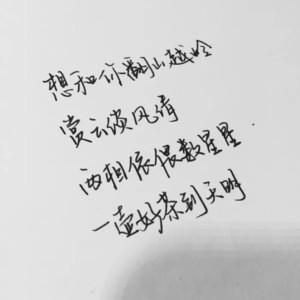 想和你翻山越岭
赏云须风清
两相依偎数星星.
一壶好茶到天明